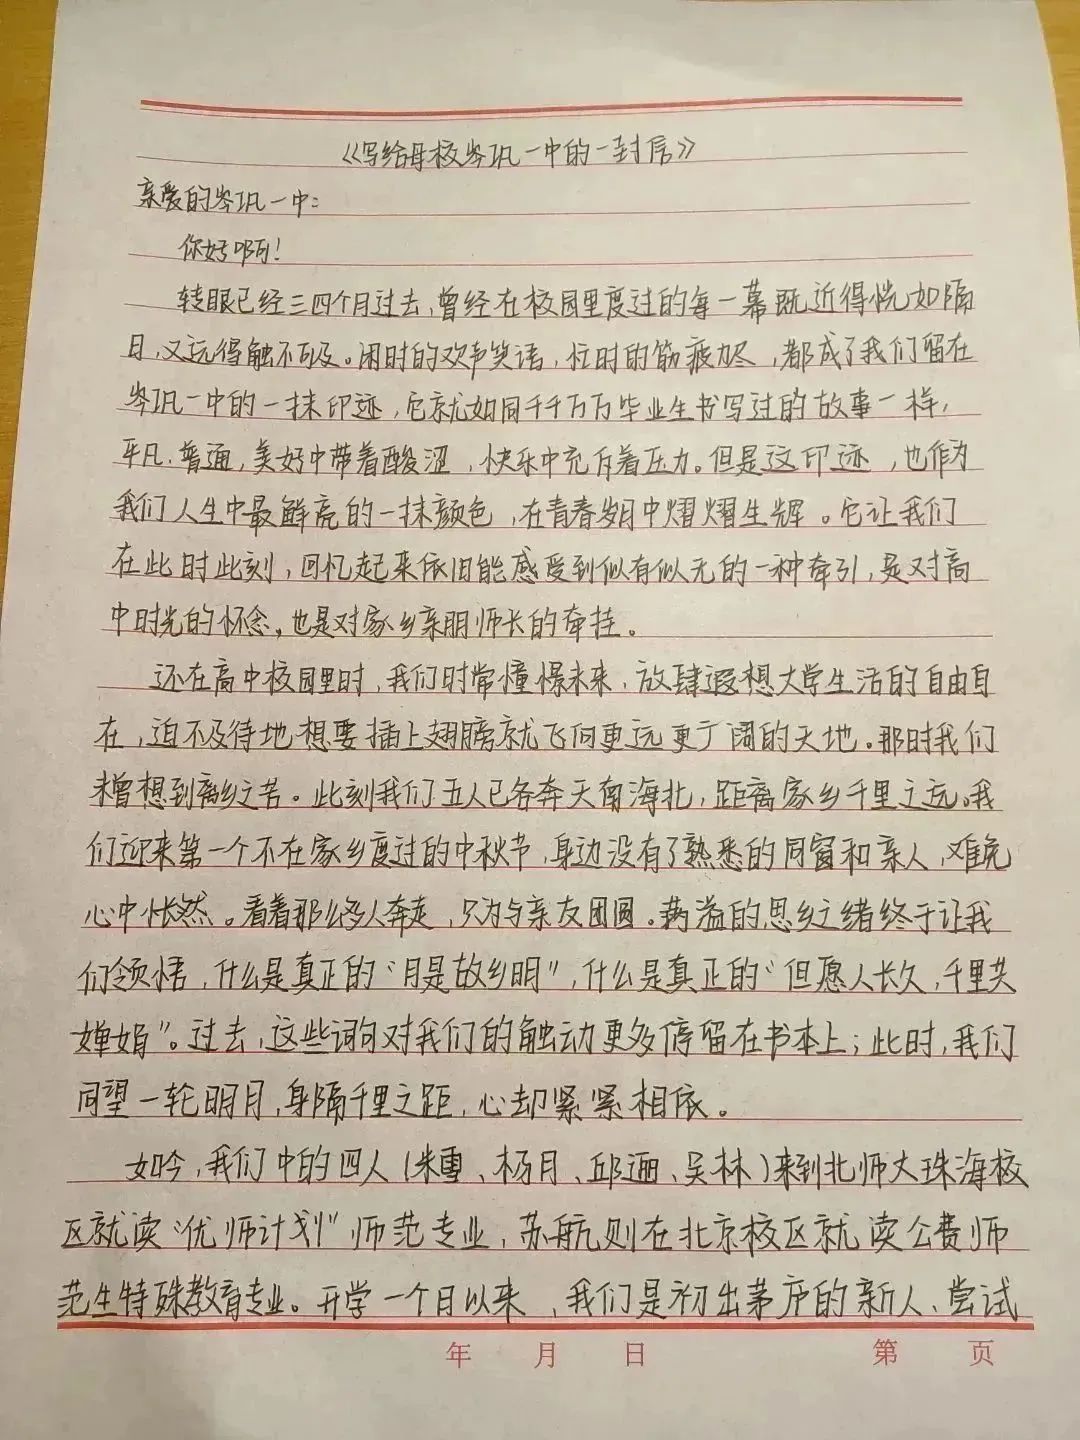 《写给母校岑巩一中的一封信》
亲爱的岑巩一中：
你好啊！
转眼已经三四个月过去，曾经在校园里度过的每一幕既近得恍如隔
日，又远得触不可及。闲时的欢声笑语，忙时的筋疲力尽，都成了我们留在
岑巩一中的一抹印迹，它就如同千千万万毕业生书写过的故事一样，
平凡、普通，美好中带着酸涩，快乐中充斥着压力。但是这印迹，也作为
我们人生中最鲜亮的一抹颜色，在青春岁月中熠熠生辉。它让我们
在此时此刻，回忆起来依旧能感受到似有似无的一种牵引，是对高
中时光的怀念，也是对家乡亲朋师长的牵挂。
还在高中校园里时，我们时常憧憬未来，放肆遐想大学生活的自由自
在，迫不及待地想要插上翅膀就飞向更远更广阔的天地。那时我们
未曾想到离乡之苦。此刻我们五人已各奔天南海北，距离家乡千里之远。我
们迎来第一个不在家乡度过的中秋节，身边没有了熟悉的同窗和亲人，难免
心中怅然。看着那么多人奔走，只为与亲友团圆。满溢的思乡之绪终于让我
们领悟，什么是真正的“月是故乡明”，什么是真正的“但愿人长久，千里共
婵娟”。过去，这些词句对我们的触动更多停留在书本上；此时，我们
同望一轮明月，身隔千里之距，心却紧紧相依。
如今，我们中的四人（朱重、杨月、邱迦、吴林）来到北师大珠海校
区就读“优师计划”师范专业，苏航则在北京校区就读公费师
范生特殊教育专业。开学一个月以来，我们是初出茅庐的新人、尝试
年 月 日 第 页